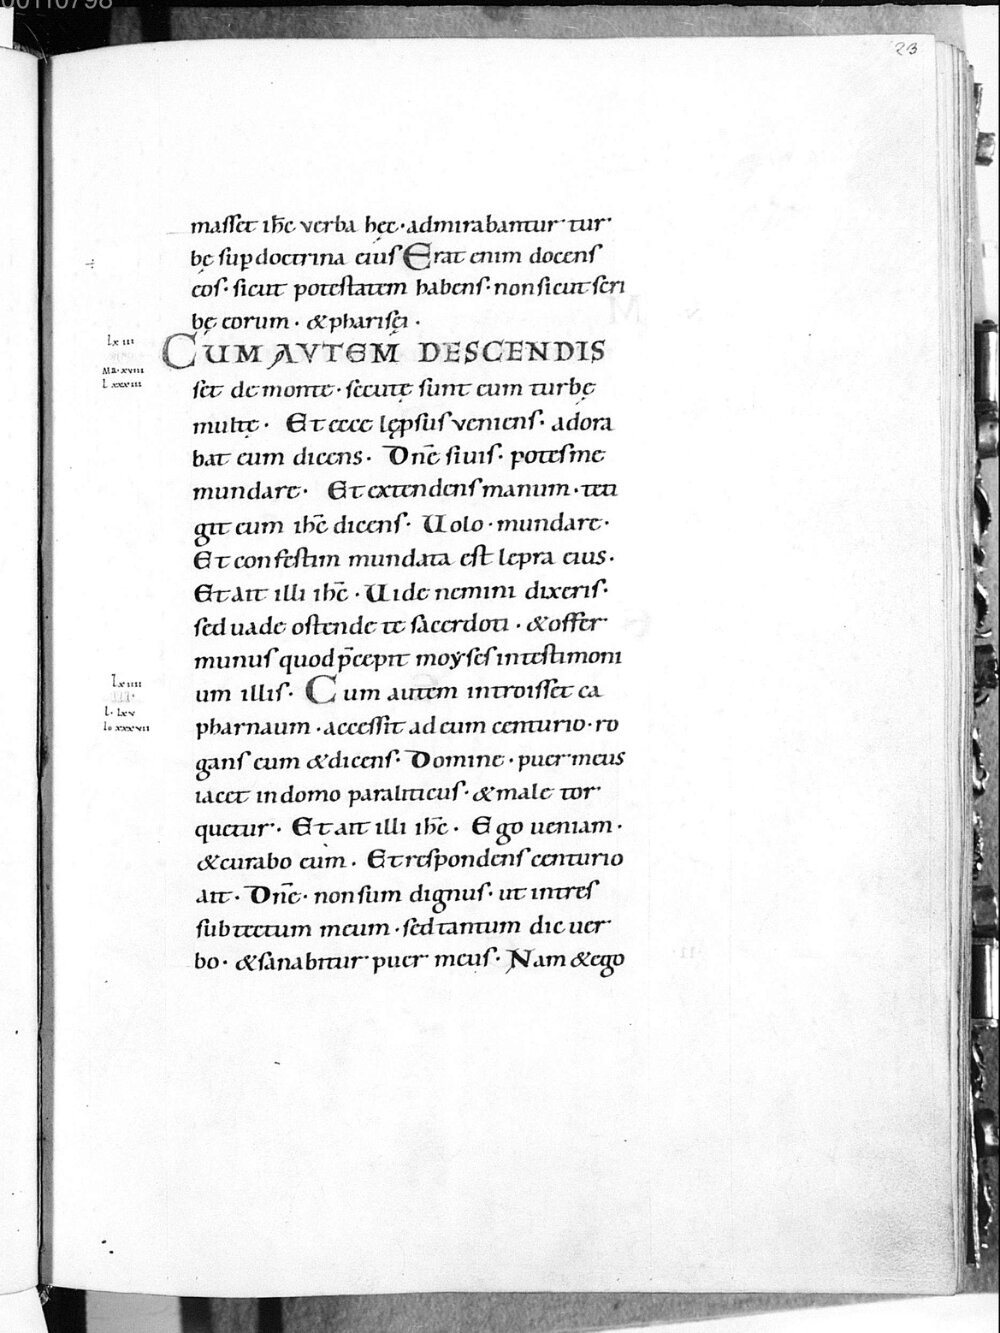 00110798
23
masset ihc̄ verba hęc · admirabantur tur
bę sup doctrina eius Erat enim docens
eos · sicut potestatem habens · non sicut scri
bę eorum · & pharisęi ·
lxiii
CUM AVTEM DESCENDIS
MR · xviii
L xxxiii
set de monte · secutę sunt eum turbę
multę · Et ecce lępsus veniens · adora
bat eum dicens · Dnē si uis · potes me
mundare · Et extendens manum · teti
git eum ihc̄ dicens · Uolo · mundare ·
Et confestim mundata est lepra eius ·
Et ait illi ihc̄ · Uide nemini dixeris ·
sed uade ostende te sacerdoti · & offer
munus quod p̄cepit moẏses in testimoni
lxiiii
um illis · Cum autem introisset ca
L · lxv
Io xxxvii
pharnaum · accessit ad eum centurio · ro
gans eum & dicens · Domine · puer meus
iacet in domo paraliticus · & male tor
quetur · Et ait illi ihc̄ · Ego ueniam ·
& curabo eum · Et respondens centurio
ait · Dnē · non sum dignus · ut intres
sub tectum meum · sed tantum dic uer
bo · & sanabitur puer meus · Nam & ego